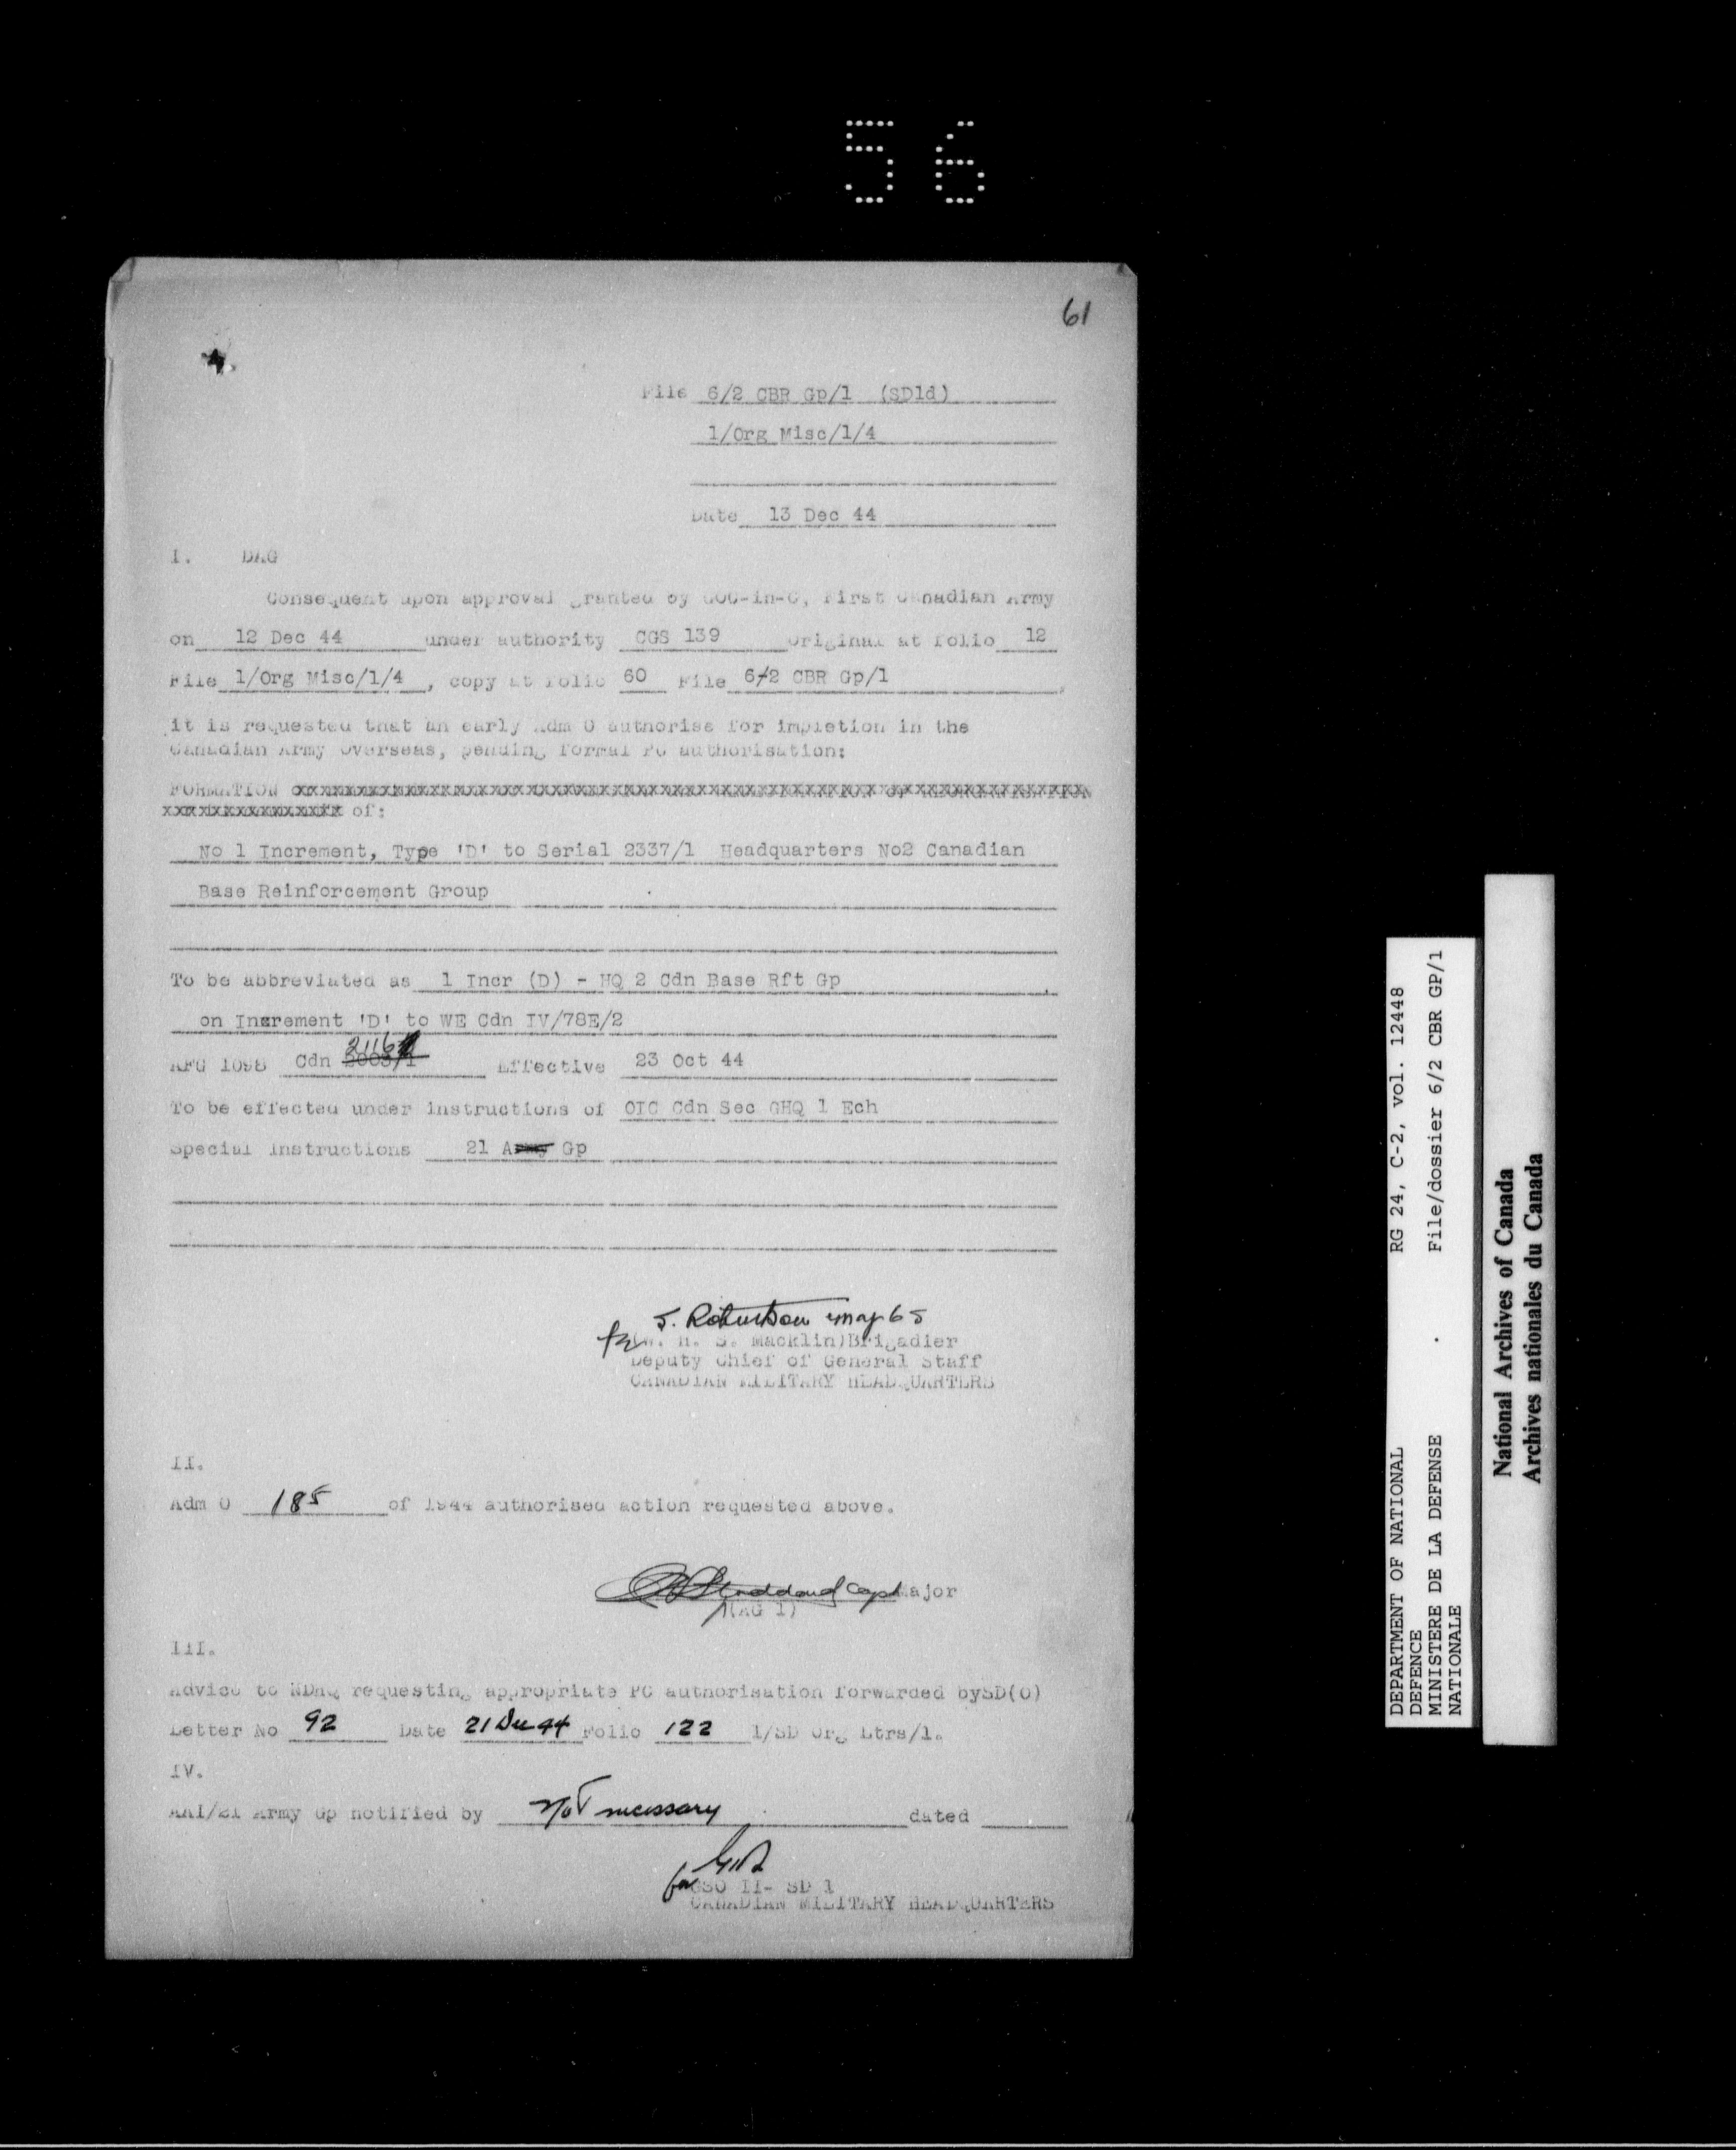 56
61
File 6/2 CBR Gp/1 (SD1d)
1/Org Misc/1/4
Date 13 Dec 44
I. DAG
Consequent upon approval granted by GOC-in-C, First Canadian Army
on 12 Dec 44 under authority CGS 139 Original at folio 12
File 1/Org Misc/1/4, copy at folio 60 File 6/2 CBR Gp/1,
it is requested that an early Adm O authorise for impletion in the
Canadian Army Overseas, pending formal PC authorisation:
FORMATION
of:
No 1 Increment, Type 'D' to Serial 2337/1 Headquarters No2 Canadian
Base Reinforcement Group
To be abbreviated as 1 Incr (D) - HQ 2 Cdn Base Rft Gp
on Increment 'D' to WE Cdn IV/78E/2
2116
AFG 1098 Cdn 2003/1 Effective 23 Oct 44
To be effected under instructions of OIC Cdn Sec GHQ 1 Ech
Special Instructions 21 Army Gp
J. Robertson Maj GS
for (W. H. S. Macklin)Brigadier
Deputy Chief of General Staff
CANADIAN MILITARY HEADQUARTERS
II.
Adm O 185 of 1944 authorised action requested above.
Stoddard Capt Major
(AG 1)
III.
Advice to NDHQ requesting appropriate PC authorisation forwarded bySD(O)
Letter No 92 Date 21 Dec 44 Folio 122 1/SD Org Ltrs/1.
IV.
AAI/21 Army Gp notified by Not necessary dated
for
GSO II- SD 1
CANADIAN MILITARY HEADQUARTERS
DEPARTMENT OF NATIONAL
DEFENCE
MINISTERE DE LA DEFENSE
NATIONALE
RG 24, C-2, vol. 12448
File/dossier 6/2 CBR GP/1
National Archives of Canada
Archives nationales du Canada